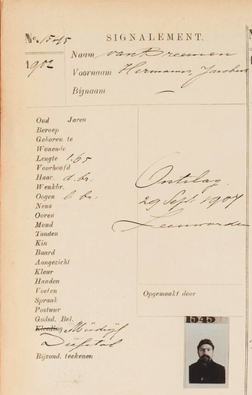 No. 1545
SIGNALEMENT.
1902
Naam van Breemen
Voornaam Hermanus, Jacobus
Bijnaam —
Oud Jaren
Beroep
Geboren te
Wonende
Lengte 1.65
Voorhoofd
Haar d. br.
Wenkbr.
Oogen l. br.
Neus
Ooren
Mond
Tanden
Kin
Baard
Aangezicht
Kleur
Handen
Voeten
Spraak
Postuur
Godsd. Bel.
Kleeding
Diefstal
Bijzond. teekenen
Ontslag
29 Sept 1907
Leeuwarden
Opgemaakt door
1545